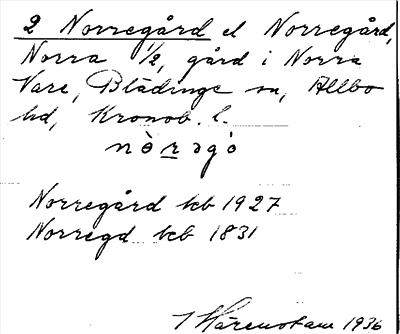 2 Norregård el Norregård,
Norra 1/2, gård i Norra
Vare, Blädinge sn, Allbo
hd, Kronob. l.
nòrəgò
Norregård kcb 1927
Norregd kcb 1831
Härenstam 1936